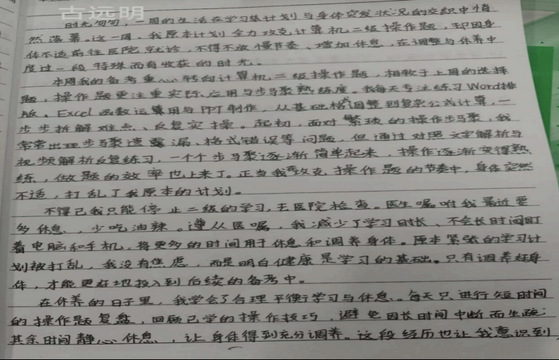 吉远明
时光匆匆，一周的生活在学习集计划与身体突发状况的交织中悄
然落幕。这一周，我原本计划全力攻克计算机二级操作题，却因身
体不适前往医院就诊，不得不放慢节奏、增加休息，在调整与休养中
度过一段特殊而有收获的时光。
本周我的备考重心转向计算机二级操作题，相较于上周的选择
题，操作题更注重实际应用与步骤熟练度。我每天专注练习Word排
版、Excel函数运算用与PPT制作，从基础格式调整到复杂公式计算，一
步步拆解难点、反复实操。起初，面对繁琐的操作步骤，我
常常出现步骤遗漏、格式错误等问题，但通过对照文字解析与
视频解析反复练习，一个个步骤逐渐简单起来，操作逐渐变得熟
练，做题的效率也上来了。正当我攻克操作题的节奏中，身体突然
不适，打乱了我原本的计划。
不得已我只能停止二级的学习，去医院检查。医生嘱咐我最近要
多休息，少吃油辣。遵从医嘱，我减少了学习时长、不会长时间盯
着电脑和手机，将更多的时间用于休息和调养身体。原本紧张的学习计
划被打乱，我没有焦虑，而是明白健康是学习的基础。只有调养好身
体，才能更好地投入到后续的备考中。
在休养的日子里，我学会了合理平衡学习与休息。每天只进行短时间
的操作题复盘，回顾已学的操作技巧，避免因长时间中断而生疏；
其余时间静心休息，让身体得到充分调养。这段经历也让我意识到